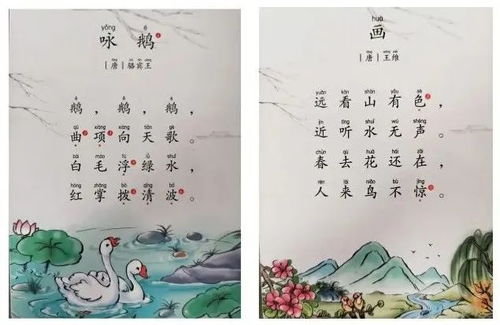 yǒng é
咏鹅
[唐] 骆宾王
鹅，鹅，鹅，
曲项向天歌。
白毛浮绿水，
红掌拨清波。
huà
画
[唐] 王维
yuǎn kàn shān yǒu sè
远看山有色，
jìn tīng shuǐ wú shēng
近听水无声。
chūn qù huā hái zài
春去花还在，
rén lái niǎo bù jīng
人来鸟不惊。